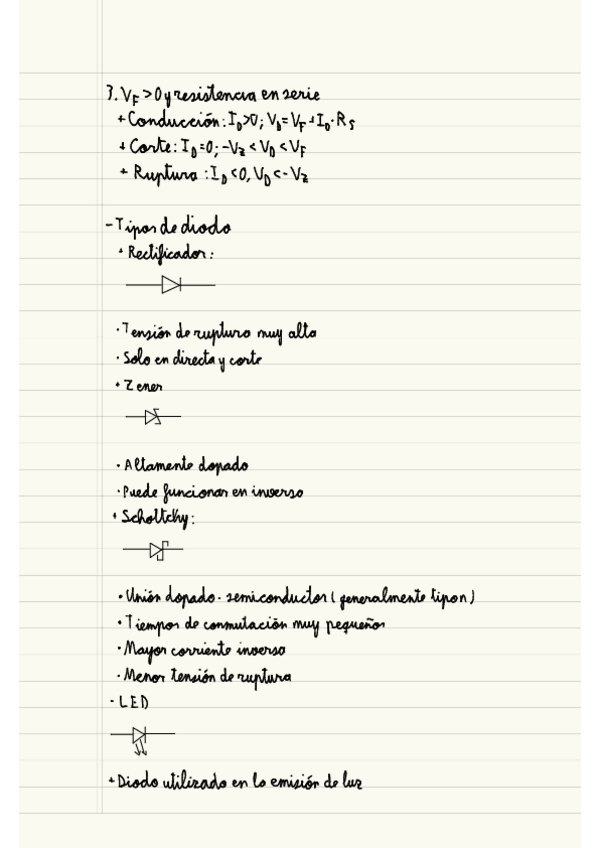 3. V_F > 0 y resistencia en serie
+ Conducción: I_D>0; V_D = V_F + I_D · R_S
+ Corte: I_D = 0; -V_Z < V_D < V_F
+ Ruptura: I_D < 0, V_D < -V_Z
- Tipos de diodo
+ Rectificador:
· Tensión de ruptura muy alta
· Solo en directa y corte
+ Zener
· Altamente dopado
· Puede funcionar en inversa
+ Scholtchy:
· Unión dopado - semiconductor (generalmente tipo n)
· Tiempos de conmutación muy pequeños
· Mayor corriente inversa
· Menor tensión de ruptura
- LED
+ Diodo utilizado en la emisión de luz